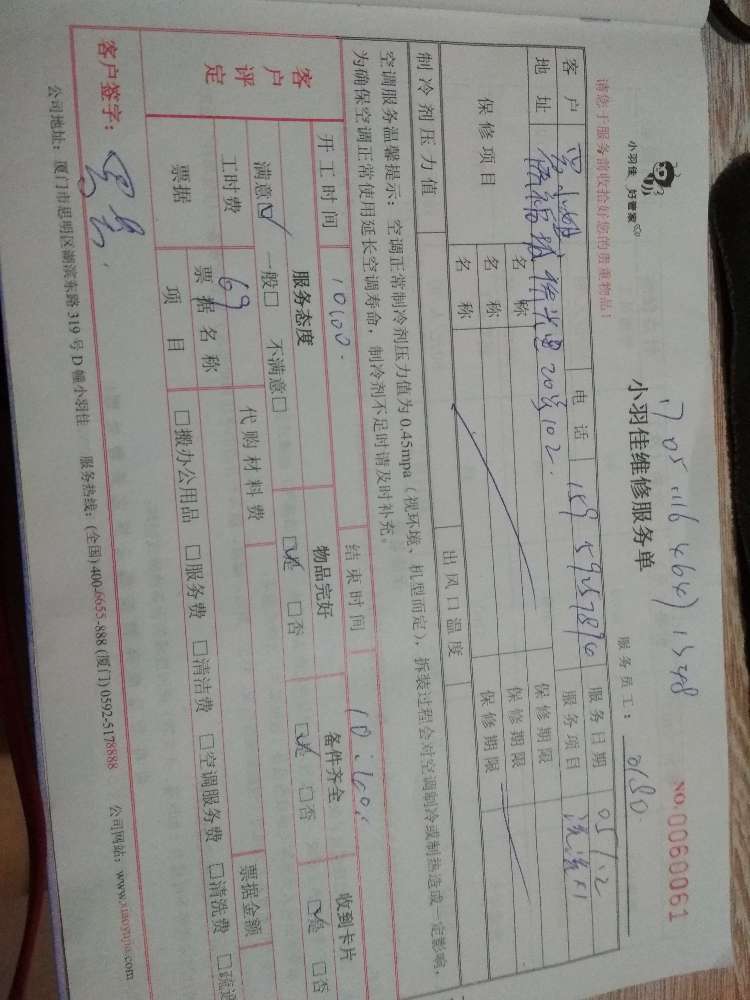 小羽佳 好管家
小羽佳维修服务单
NO.0060061
请您于服务前收拾好您的贵重物品！
服务员工： 0180
客户
电话
服务日期 05/12
地址
20号102.
服务项目
保修项目
名称
保修期限
名称
保修期限
名称
保修期限
制冷剂压力值
出风口温度
空调服务温馨提示：空调正常制冷剂压力值为0.45mpa（视环境、机型而定），拆装过程会对空调制冷或制热造成一定影响，
为确保空调正常使用延长空调寿命，制冷剂不足时请及时补充。
开工时间
结束时间
客户评定
服务态度
物品完好
备件齐全
收到卡片
满意☑ 一般□ 不满意□
☑是 □否
☑是 □否
☑是 □否
工时费 69
代购材料费
票据金额
票据
票据名称
项目
□搬办公用品 □服务费 □清洁费 □空调服务费 □清洗费 □疏通
客户签字：
公司地址：厦门市思明区湖滨东路319号D幢小羽佳 服务热线：(全国)400-6655-888 (厦门)0592-5178888 公司网站：www.xiaoyujia.com